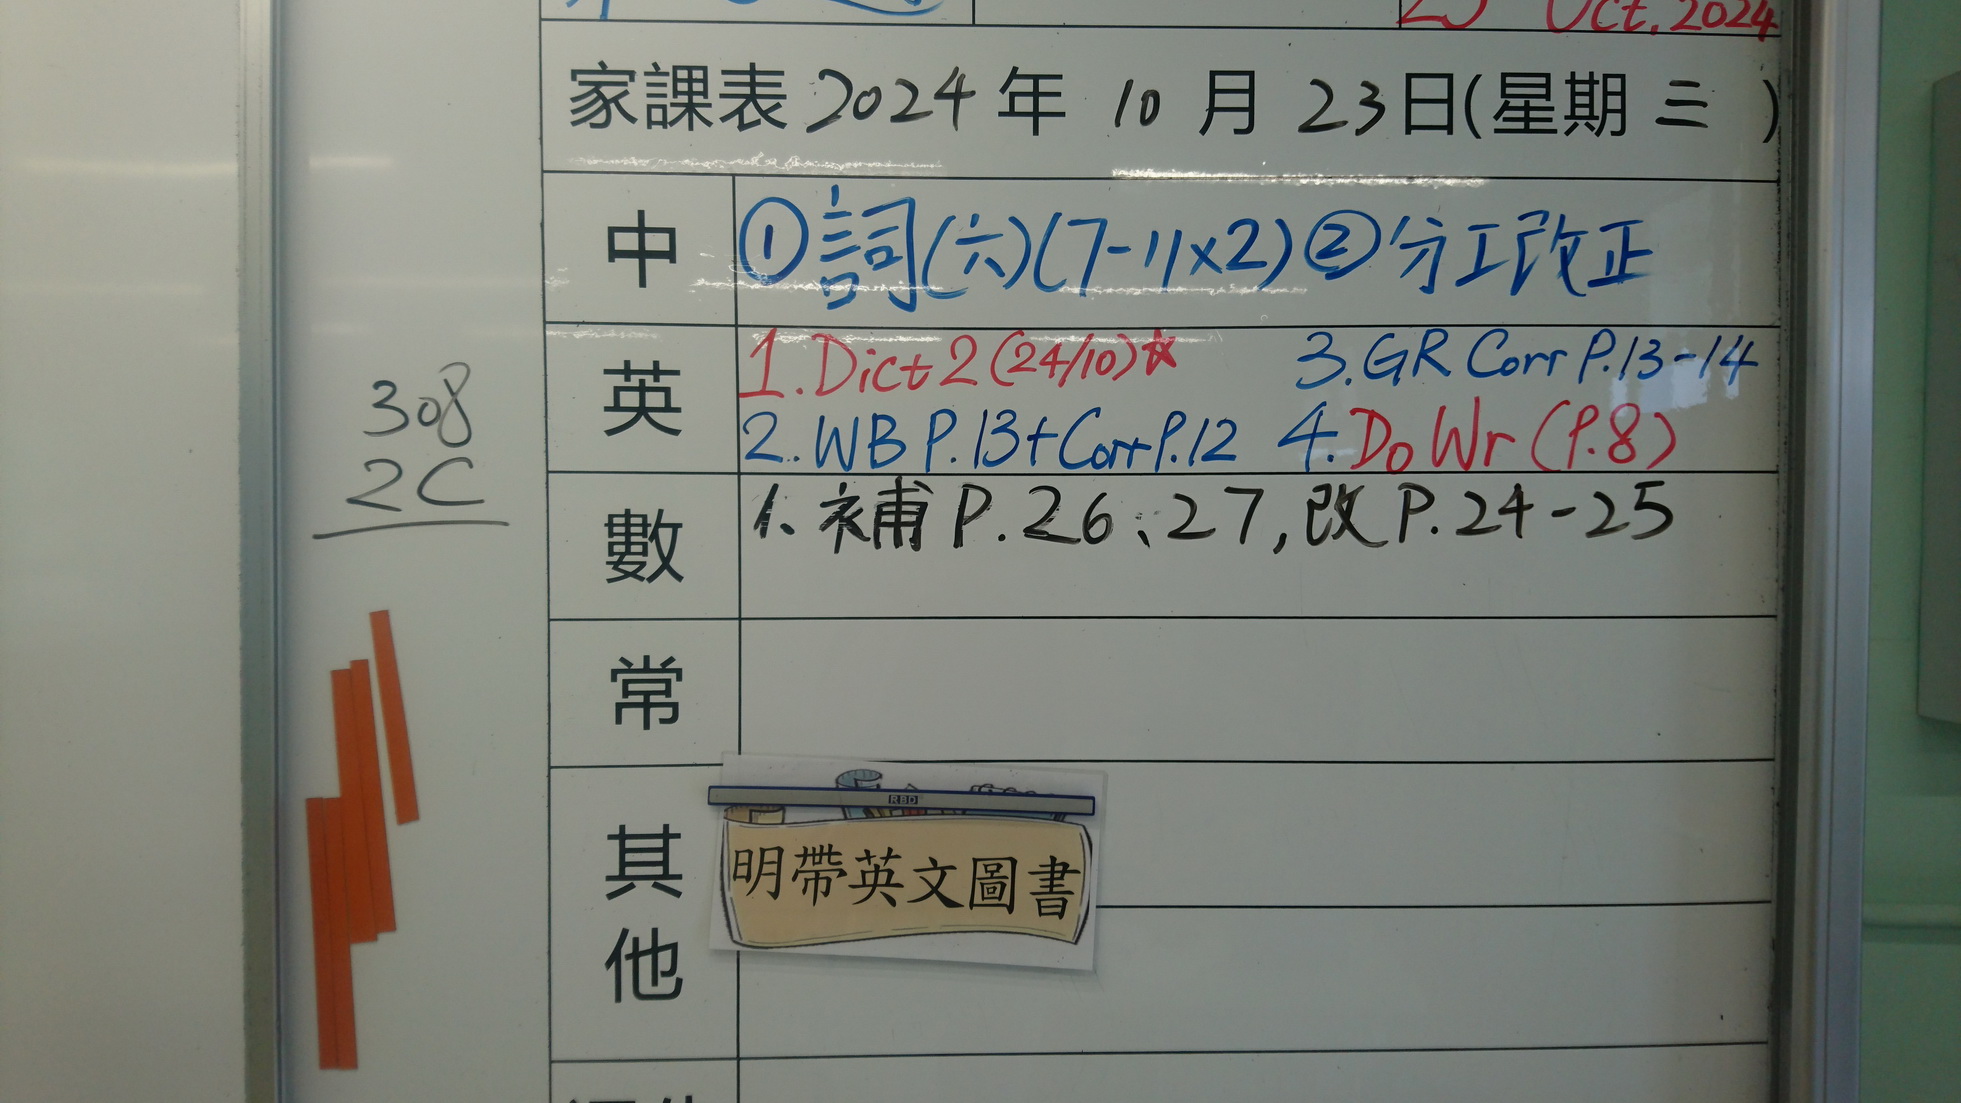 23 Oct. 2024
家課表 2024 年 10 月 23 日(星期 三 )
中 ①詞(六)(7-11x2) ②分工改正
英 1. Dict 2 (24/10)☆ 3. GR Corr P.13-14
2. WB P.13+Corr P.12 4. Do Wr (P.8)
數 1. 補 P. 26、27, 改 P. 24-25
常
其他
RBD
明帶英文圖書
308
2C